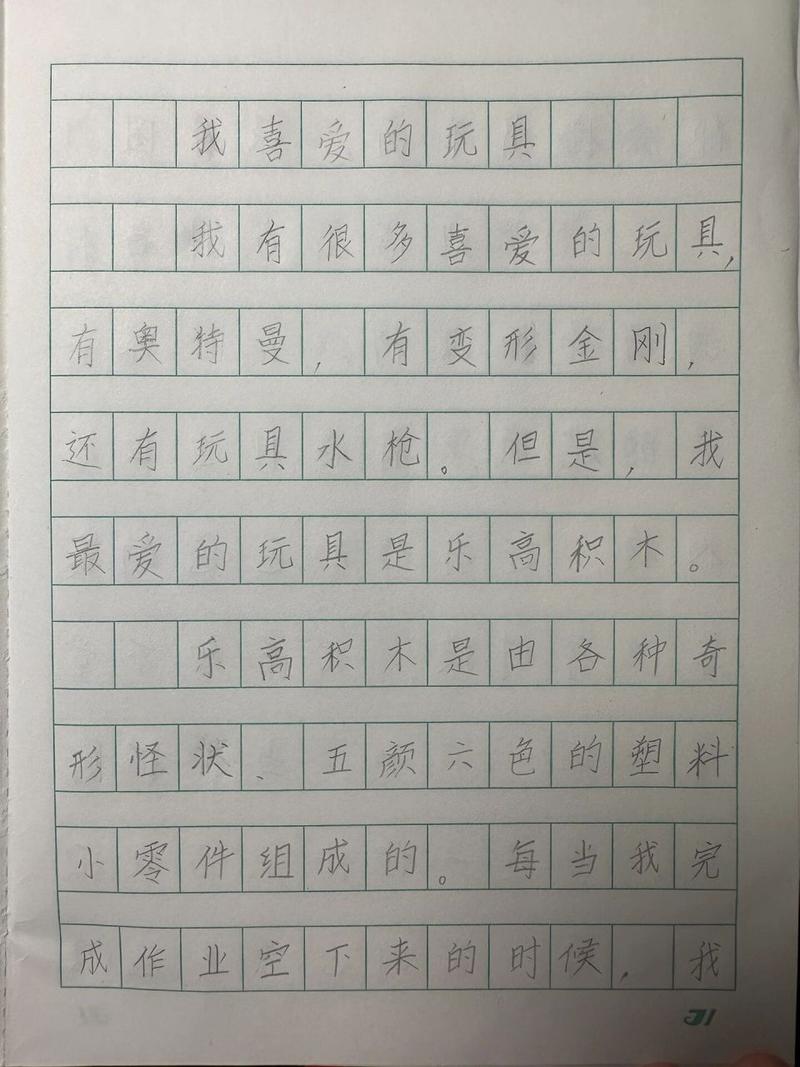 我喜爱的玩具
我有很多喜爱的玩具,
有奥特曼,有变形金刚,
还有玩具水枪。但是,我
最爱的玩具是乐高积木。
乐高积木是由各种奇
形怪状、五颜六色的塑料
小零件组成的。每当我完
成作业空下来的时候,我